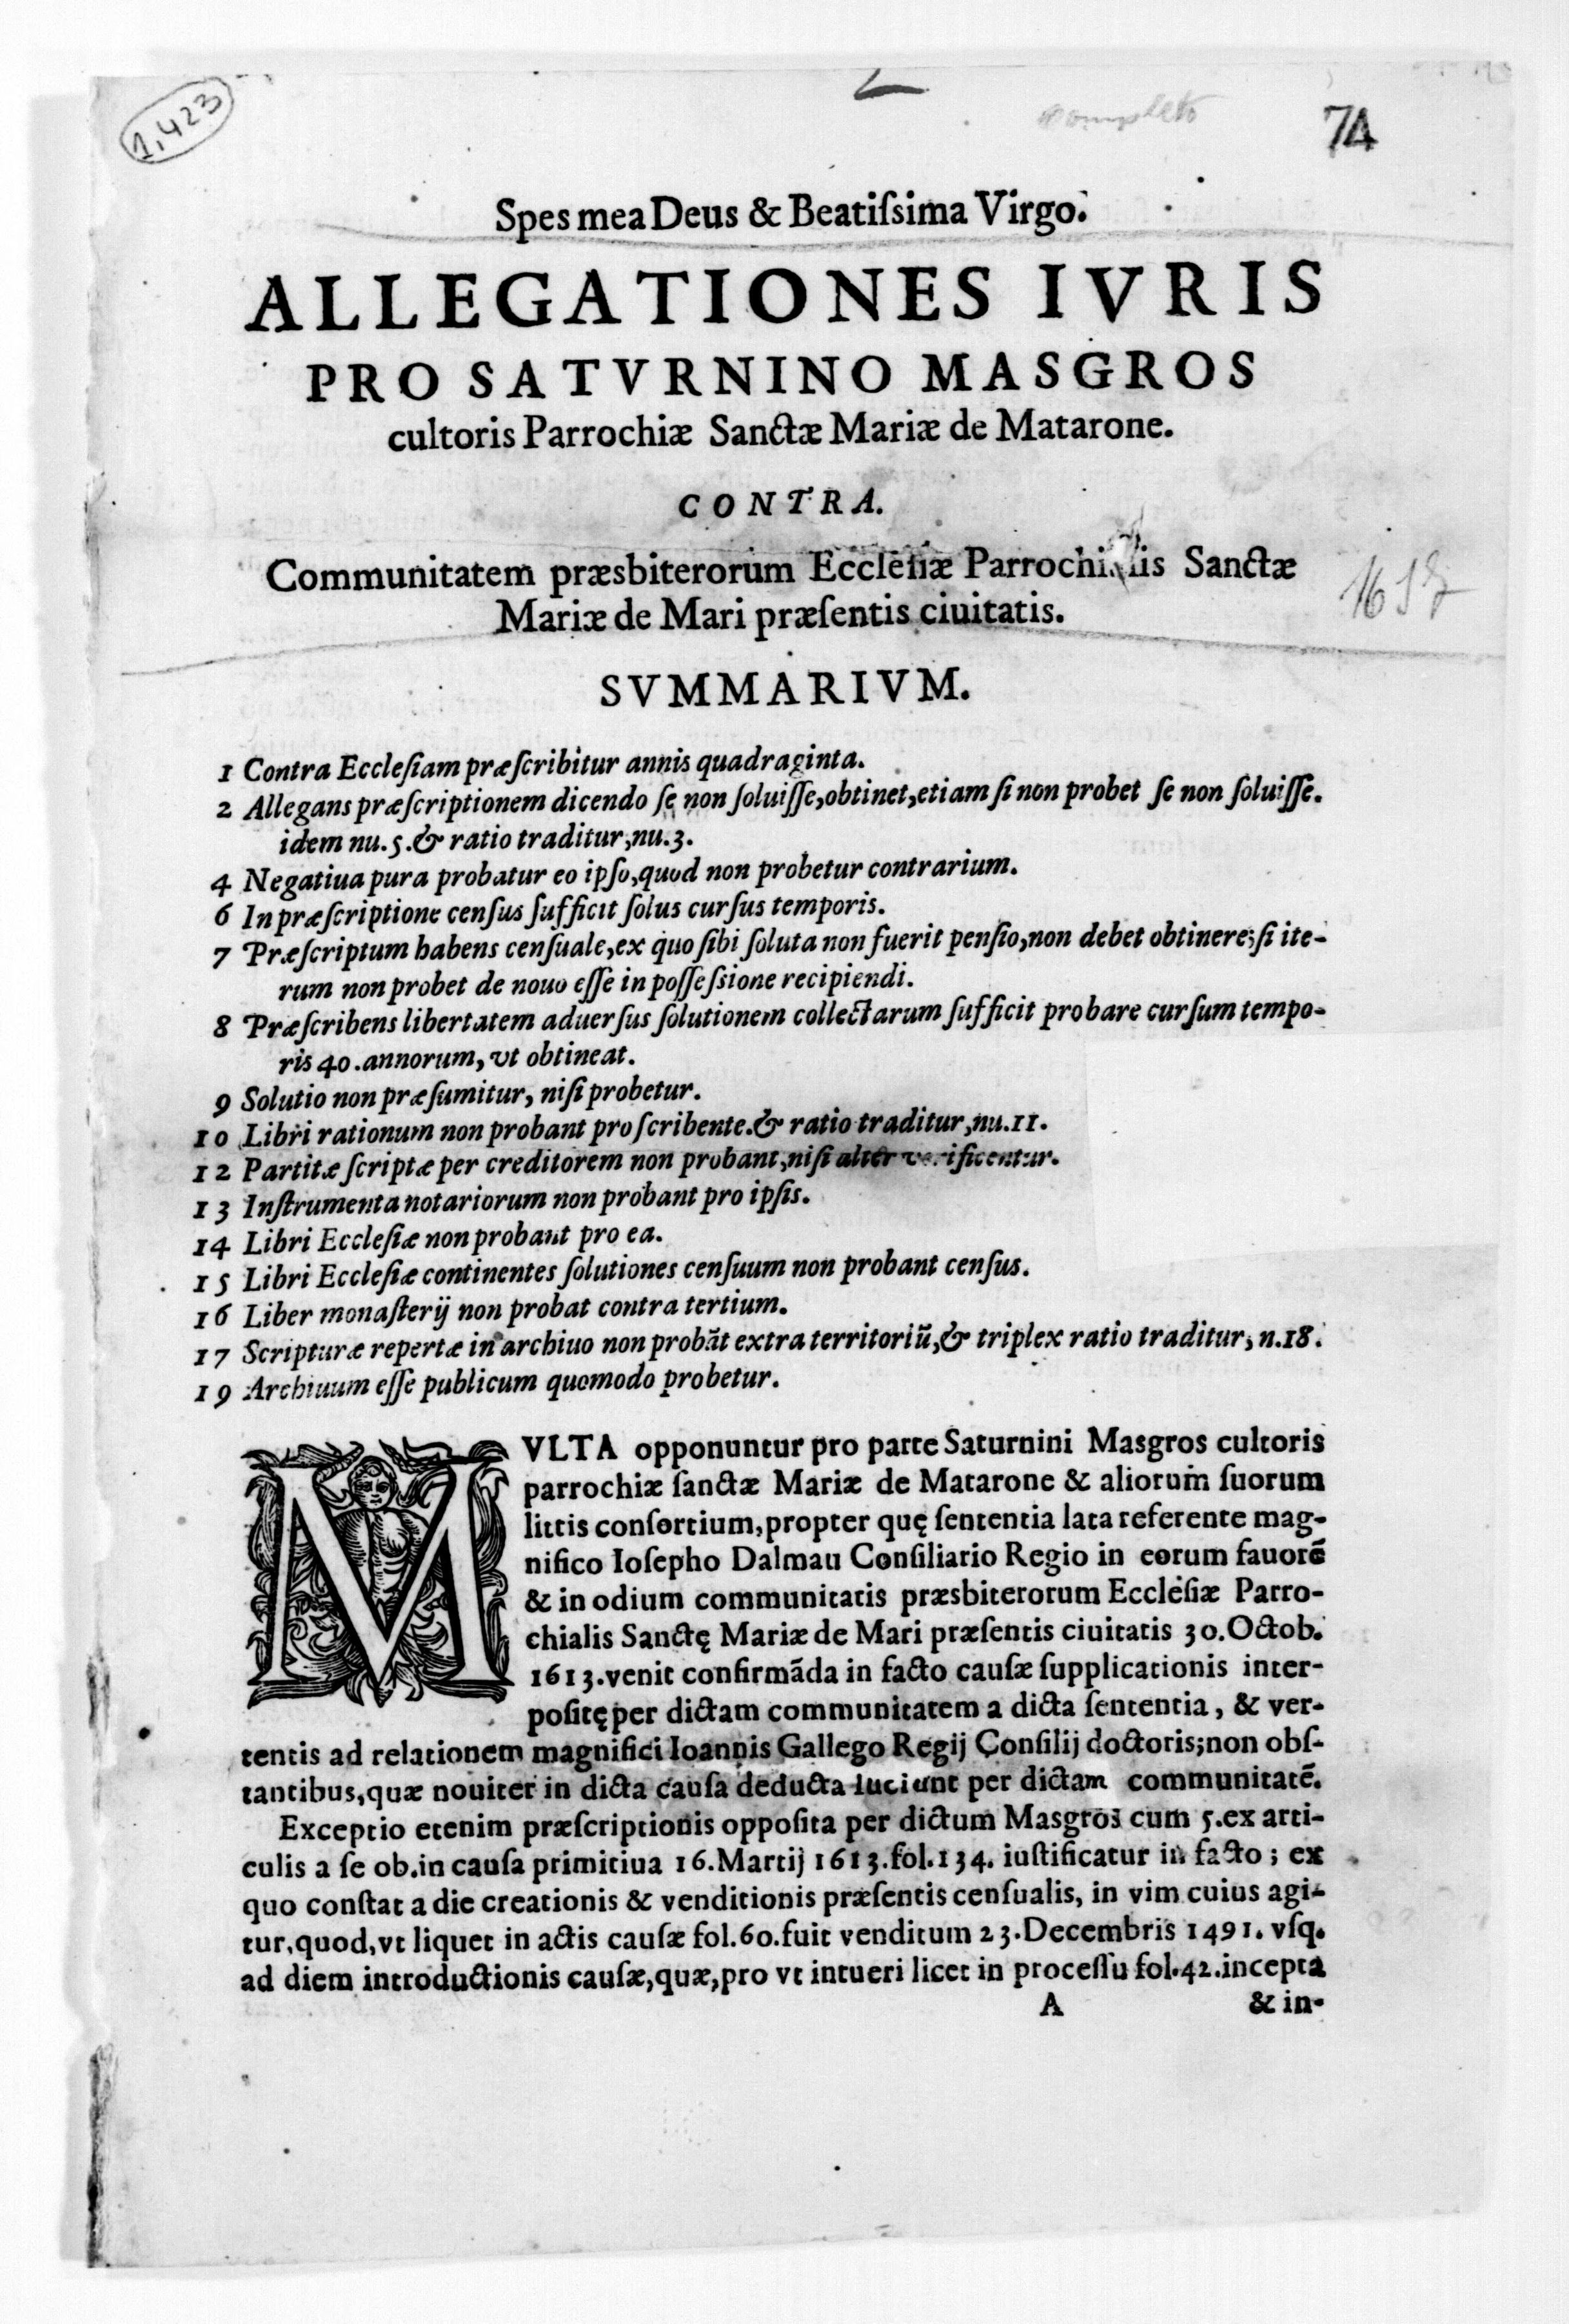 1,423
completo
74
Spes mea Deus & Beatiſsima Virgo.
ALLEGATIONES IVRIS
PRO SATVRNINO MASGROS
cultoris Parrochiæ Sanctæ Mariæ de Matarone.
CONTRA.
Communitatem præsbiterorum Ecclesiæ Parrochialis Sanctæ
Mariæ de Mari præſentis ciuitatis.
SVMMARIVM.
1 Contra Eccleſiam præſcribitur annis quadraginta.
2 Allegans præſcriptionem dicendo ſe non ſoluiſſe,obtinet,etiam ſi non probet ſe non ſoluiſſe.
idem nu.5.& ratio traditur,nu.3.
4 Negatiua pura probatur eo ipſo,quod non probetur contrarium.
6 In præſcriptione cenſus ſufficit ſolus curſus temporis.
7 Præſcriptum habens cenſuale,ex quo ſibi ſoluta non fuerit penſio,non debet obtinere;ſi ite-
rum non probet de nouo eſſe in poſſeſsione recipiendi.
8 Præſcribens libertatem aduerſus ſolutionem collectarum ſufficit probare curſum tempo-
ris 40.annorum, vt obtineat.
9 Solutio non præſumitur, niſi probetur.
10 Libri rationum non probant pro ſcribente.& ratio traditur,nu.11.
12 Partitæ ſcriptæ per creditorem non probant,niſi aliter verificentur.
13 Inſtrumenta notariorum non probant pro ipſis.
14 Libri Eccleſiæ non probant pro ea.
15 Libri Eccleſiæ continentes ſolutiones cenſuum non probant cenſus.
16 Liber monaſterij non probat contra tertium.
17 Scripturæ repertæ in archiuo non probāt extra territoriū,& triplex ratio traditur, n.18.
19 Archiuum eſſe publicum quomodo probetur.
MVLTA opponuntur pro parte Saturnini Masgros cultoris
parrochiæ ſanctæ Mariæ de Matarone & aliorum ſuorum
littis conſortium,propter quę ſententia lata referente mag-
nifico Ioſepho Dalmau Conſiliario Regio in eorum fauorē
& in odium communitatis præsbiterorum Eccleſiæ Parro-
chialis Sanctę Mariæ de Mari præſentis ciuitatis 30.Octob.
1613.venit confirmāda in facto cauſæ ſupplicationis inter-
poſitę per dictam communitatem a dicta ſententia, & ver-
tentis ad relationem magnifici Ioannis Gallego Regij Conſilij doctoris;non obſ-
tantibus,quæ nouiter in dicta cauſa deducta fuerunt per dictam communitatē.
Exceptio etenim præſcriptionis oppoſita per dictum Masgros cum 5.ex arti-
culis a ſe ob.in cauſa primitiua 16.Martij 1613.fol.134. iuſtificatur in facto; ex
quo conſtat a die creationis & venditionis præſentis cenſualis, in vim cuius agi-
tur,quod,vt liquet in actis cauſæ fol.60.fuit venditum 23.Decembris 1491. vſq.
ad diem introductionis cauſæ,quæ,pro vt intueri licet in proceſſu fol.42.incepta
A & in-